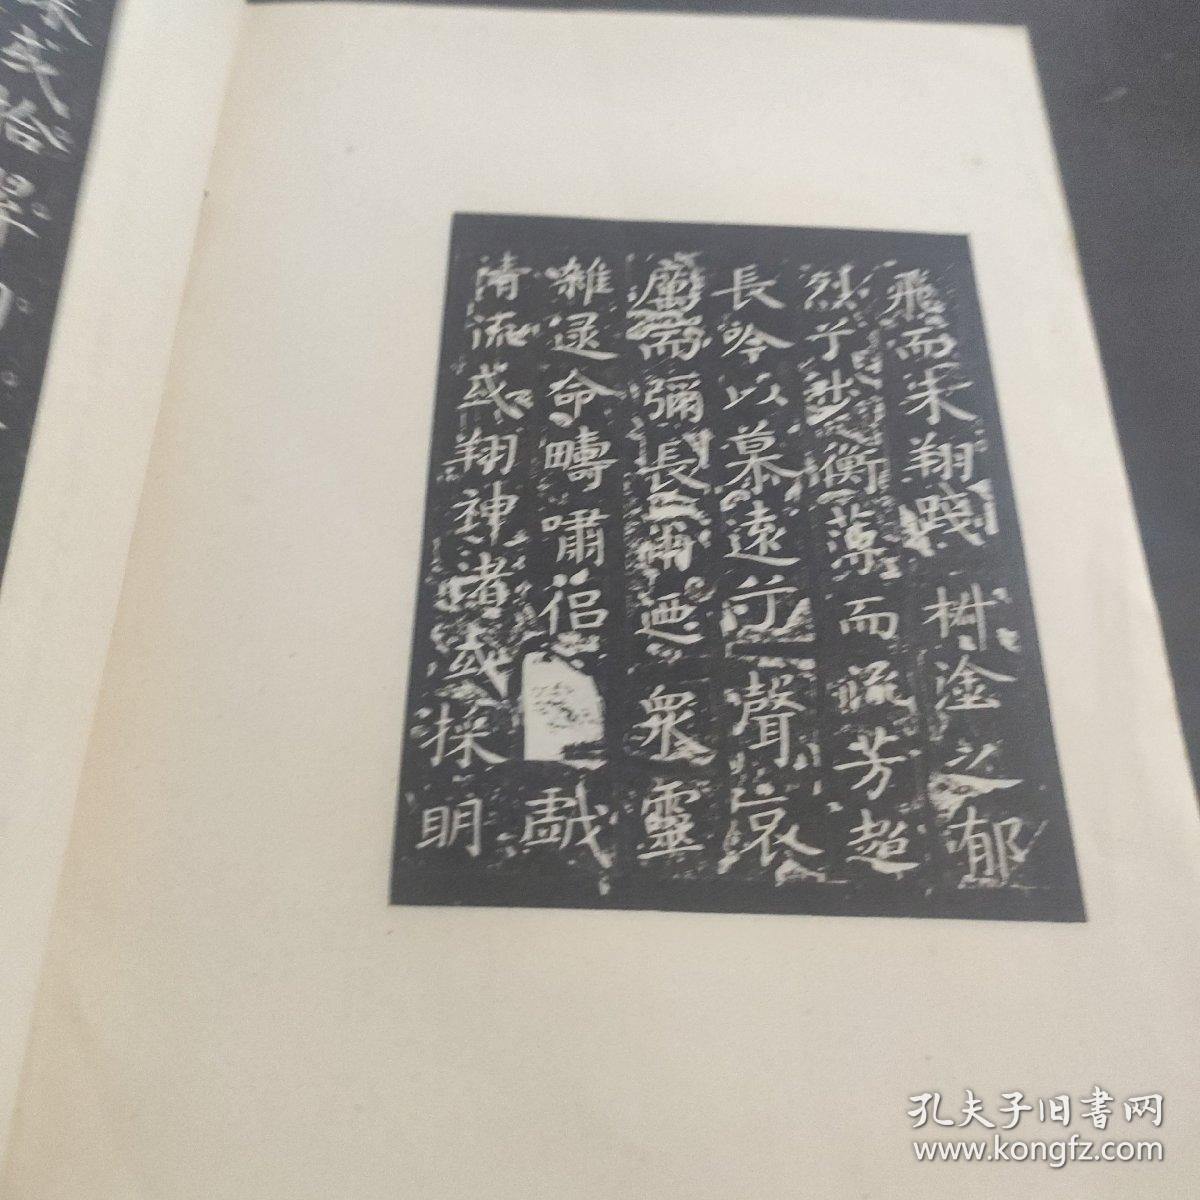 飛而未翔踐椒塗之郁
烈兮步衡薄而流芳超
長吟以慕遠兮聲哀
厲而彌長爾迺衆靈
雜遝命疇嘯侶戲
清流或翔神渚或採明
或拾翠羽
孔夫子旧书网
www.kongfz.com